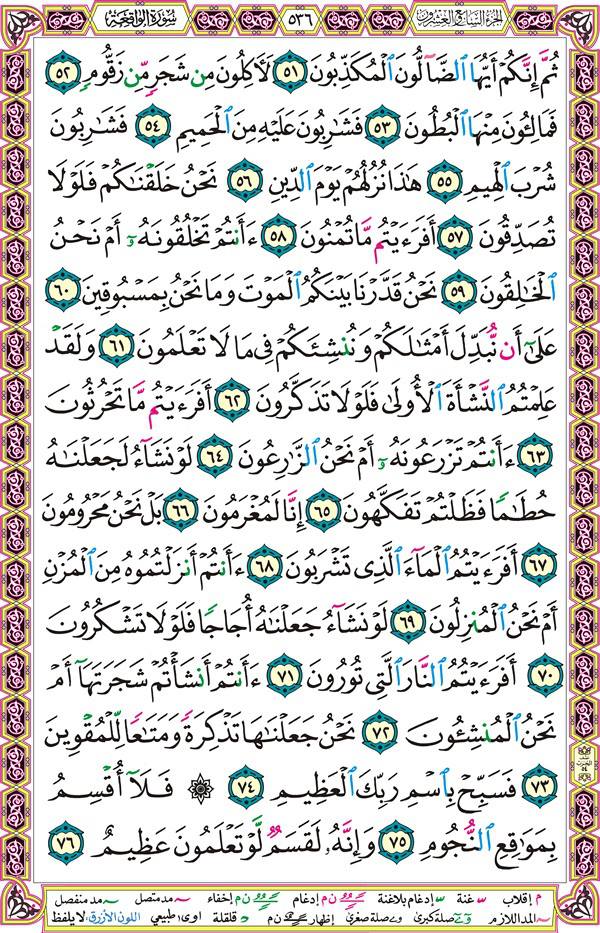 الجزء السابع والعشرون ٥٣٦ سورة الواقعة
ثُمَّ إِنَّكُمْ أَيُّهَا الضَّآلُّونَ الْمُكَذِّبُونَ ٥١ لَأَكِلُونَ مِن شَجَرٍ مِّن زَقُّومٍ ٥٢
فَمَالِئُونَ مِنْهَا الْبُطُونَ ٥٣ فَشَارِبُونَ عَلَيْهِ مِنَ الْحَمِيمِ ٥٤ فَشَارِبُونَ
شُرْبَ الْهِيمِ ٥٥ هَٰذَا نُزُلُهُمْ يَوْمَ الدِّينِ ٥٦ نَحْنُ خَلَقْنَاكُمْ فَلَوْلَا
تُصَدِّقُونَ ٥٧ أَفَرَءَيْتُم مَّا تُمْنُونَ ٥٨ ءَأَنتُمْ تَخْلُقُونَهُۥٓ أَمْ نَحْنُ
الْخَٰلِقُونَ ٥٩ نَحْنُ قَدَّرْنَا بَيْنَكُمُ الْمَوْتَ وَمَا نَحْنُ بِمَسْبُوقِينَ ٦٠
عَلَىٰٓ أَن نُّبَدِّلَ أَمْثَٰلَكُمْ وَنُنشِئَكُمْ فِي مَا لَا تَعْلَمُونَ ٦١ وَلَقَدْ
عَلِمْتُمُ النَّشْأَةَ الْأُولَىٰ فَلَوْلَا تَذَكَّرُونَ ٦٢ أَفَرَءَيْتُم مَّا تَحْرُثُونَ
٦٣ ءَأَنتُمْ تَزْرَعُونَهُۥٓ أَمْ نَحْنُ الزَّارِعُونَ ٦٤ لَوْ نَشَآءُ لَجَعَلْنَٰهُ
حُطَٰمًا فَظَلْتُمْ تَفَكَّهُونَ ٦٥ إِنَّا لَمُغْرَمُونَ ٦٦ بَلْ نَحْنُ مَحْرُومُونَ
٦٧ أَفَرَءَيْتُمُ الْمَآءَ الَّذِي تَشْرَبُونَ ٦٨ ءَأَنتُمْ أَنزَلْتُمُوهُ مِنَ الْمُزْنِ
أَمْ نَحْنُ الْمُنزِلُونَ ٦٩ لَوْ نَشَآءُ جَعَلْنَٰهُ أُجَاجًا فَلَوْلَا تَشْكُرُونَ
٧٠ أَفَرَءَيْتُمُ النَّارَ الَّتِي تُورُونَ ٧١ ءَأَنتُمْ أَنشَأْتُمْ شَجَرَتَهَآ أَمْ
نَحْنُ الْمُنشِئُونَ ٧٢ نَحْنُ جَعَلْنَٰهَا تَذْكِرَةً وَمَتَٰعًا لِّلْمُقْوِينَ
٧٣ فَسَبِّحْ بِاسْمِ رَبِّكَ الْعَظِيمِ ٧٤ ۞ فَلَآ أُقْسِمُ
بِمَوَٰقِعِ النُّجُومِ ٧٥ وَإِنَّهُۥ لَقَسَمٌ لَّوْ تَعْلَمُونَ عَظِيمٌ ٧٦
م إقلاب غنة إدغام بلاغنة ن م إدغام ن م إخفاء مد متصل مد منفصل
المد اللازم صلة كبرى صلة صغرى إظهار ن م قلقلة اوى طبيعي اللون الأزرق لا يلفظ